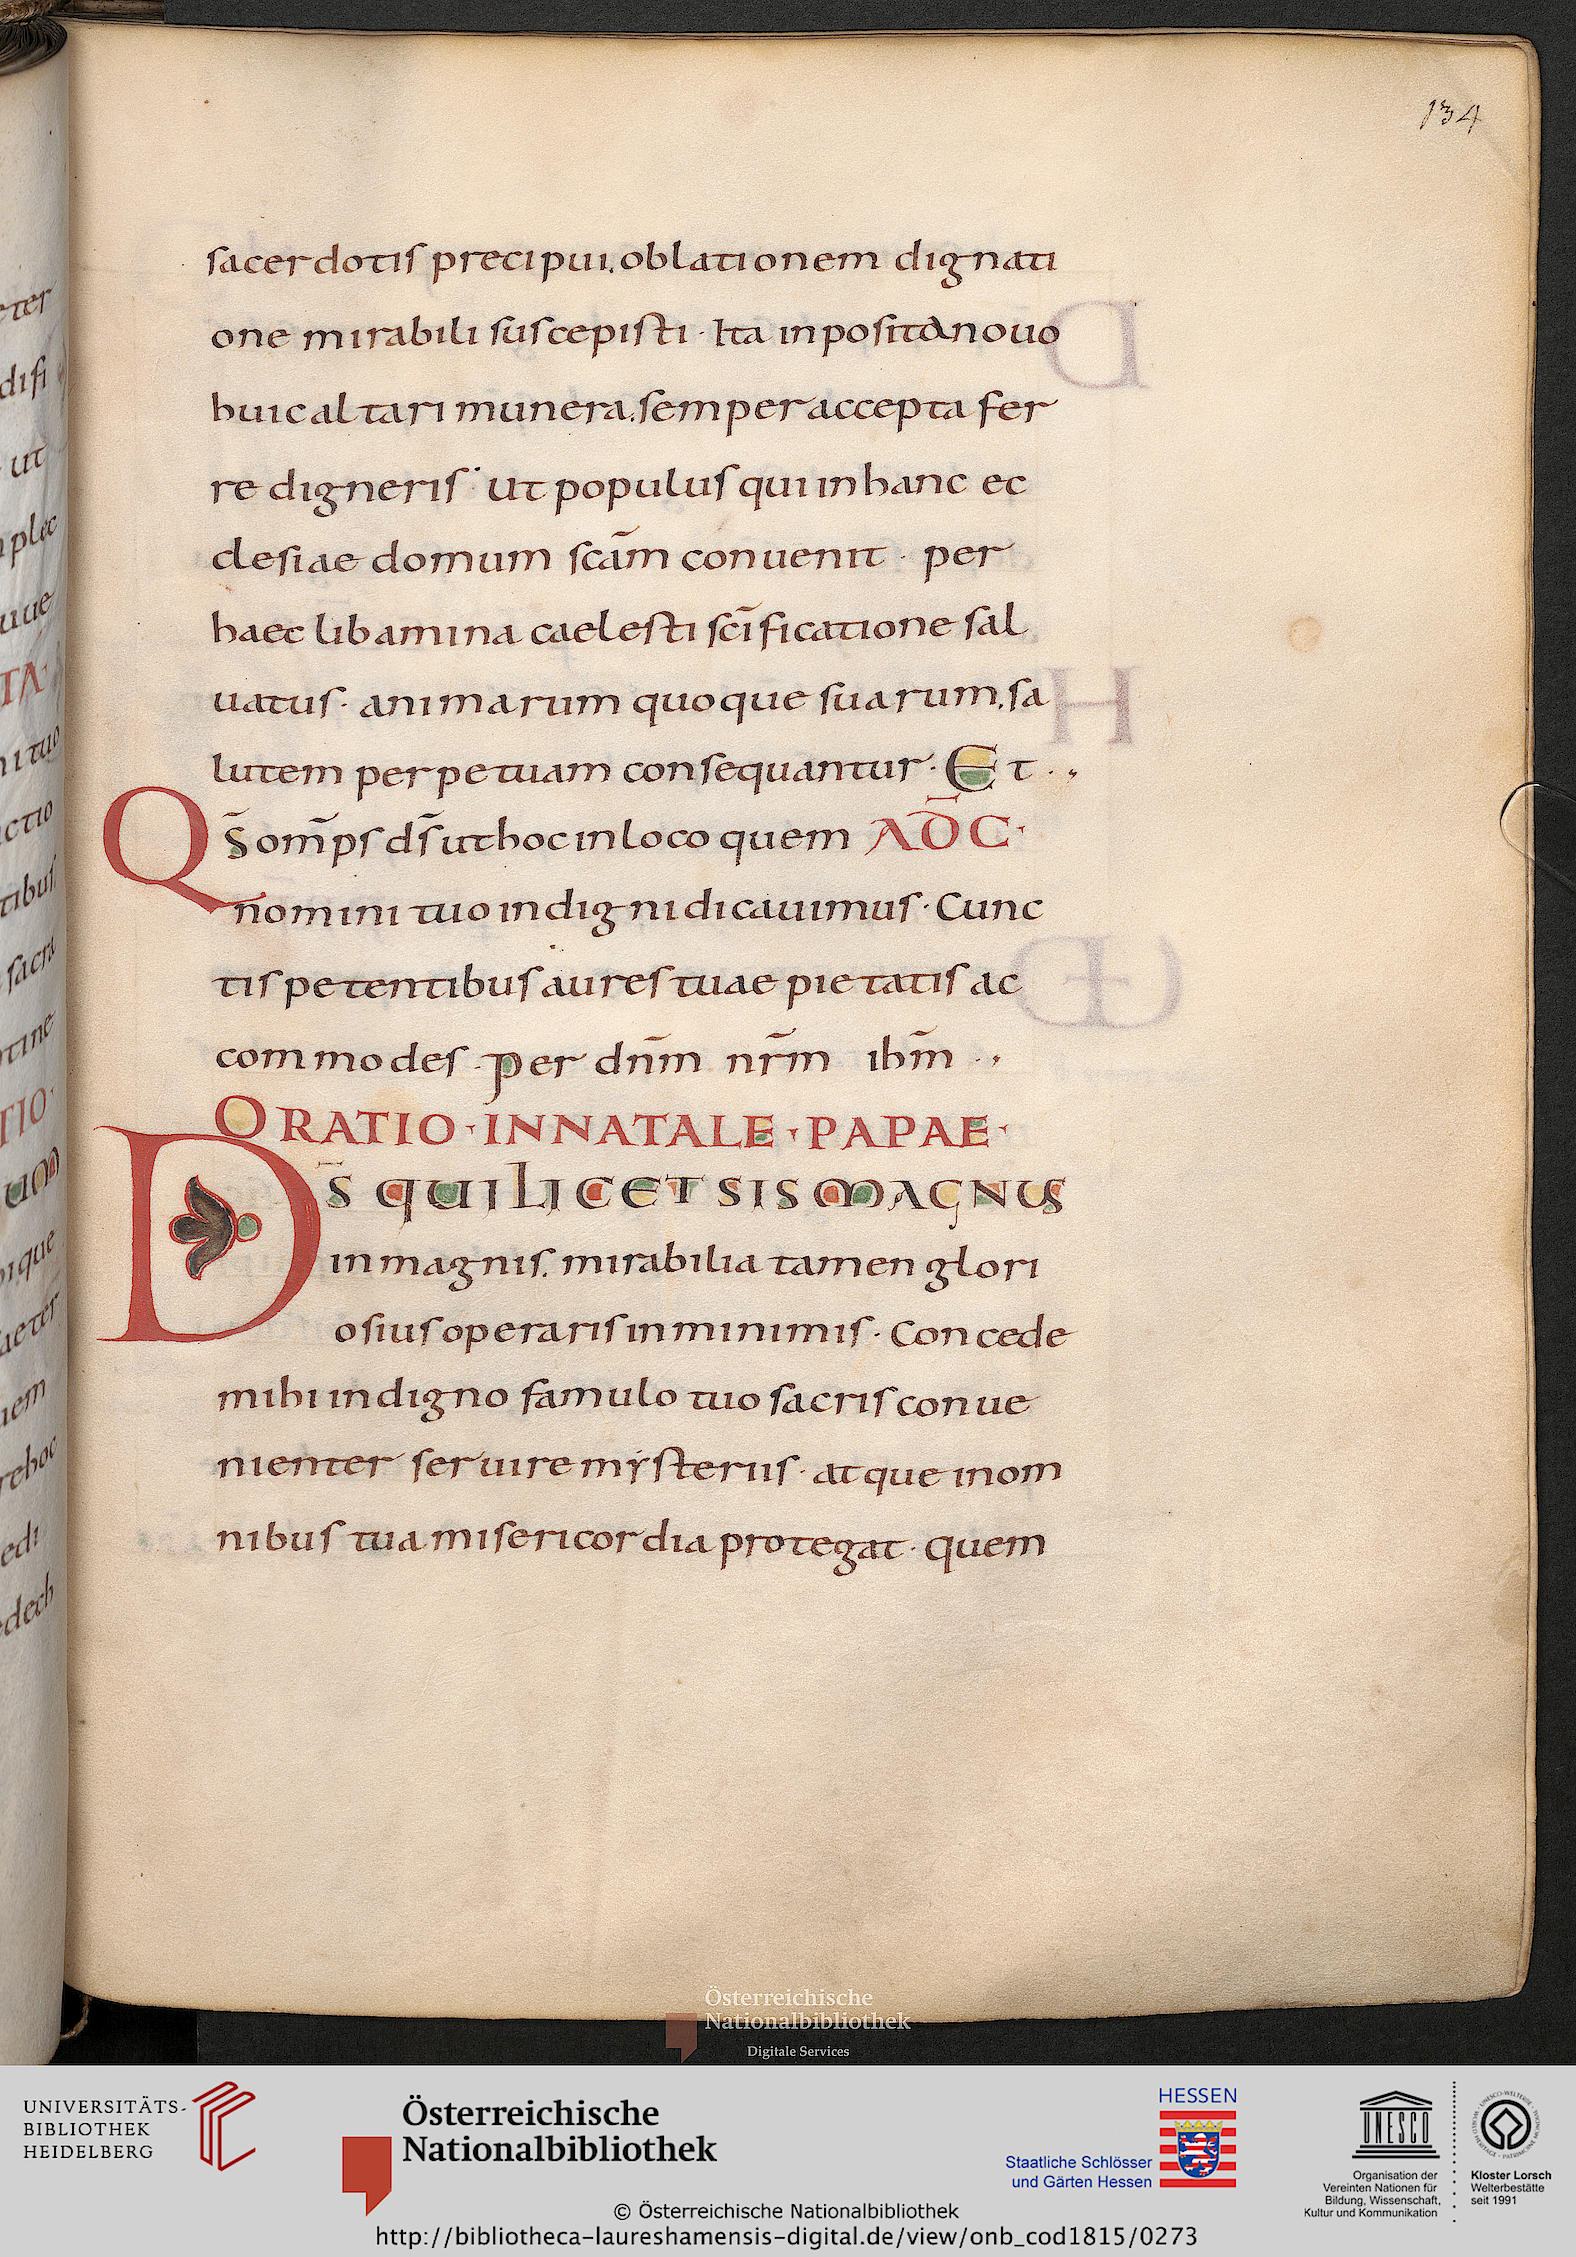 134
sacerdotis precipui. oblationem dignati
one mirabili suscepisti · Ita inposita novo
huic altari munera. semper accepta fer
re digneris · ut populus qui in hanc ec
clesiae domum scām convenit · per
haec libamina caelesti scīficatione sal
vatus · animarum quoque suarum. sa
lutem perpetuam consequantur · Et · ,
Qs̄ om̄ps ds̄ ut hoc in loco quem AD̄C ·
nomini tuo indigni dicavimus · Cunc
tis petentibus aures tuae pietatis ac
commodes · per dn̄m nr̄m ihm̄ · ,
ORATIO · IN NATALE · PAPAE ·
DS̄ QUI LICET SIS MAGNUS
in magnis. mirabilia tamen glori
osius operaris in minimis · Concede
mihi indigno famulo tuo sacris conve
nienter servire mysteriis · atque in om
nibus tua misericordia protegat · quem
eter
difi
ut
plec
uue
TA ·
ni tuo
ctio
tibus
sacra
tine
TIO ·
um
ique
aeter
uem
re hoc
edi
edech
Österreichische
Nationalbibliothek
Digitale Services
UNIVERSITÄTS-
BIBLIOTHEK
HEIDELBERG
Österreichische
Nationalbibliothek
HESSEN
Staatliche Schlösser
und Gärten Hessen
UNESCO
Organisation der
Vereinten Nationen für
Bildung, Wissenschaft,
Kultur und Kommunikation
Kloster Lorsch
Welterbestätte
seit 1991
© Österreichische Nationalbibliothek
http://bibliotheca-laureshamensis-digital.de/view/onb_cod1815/0273